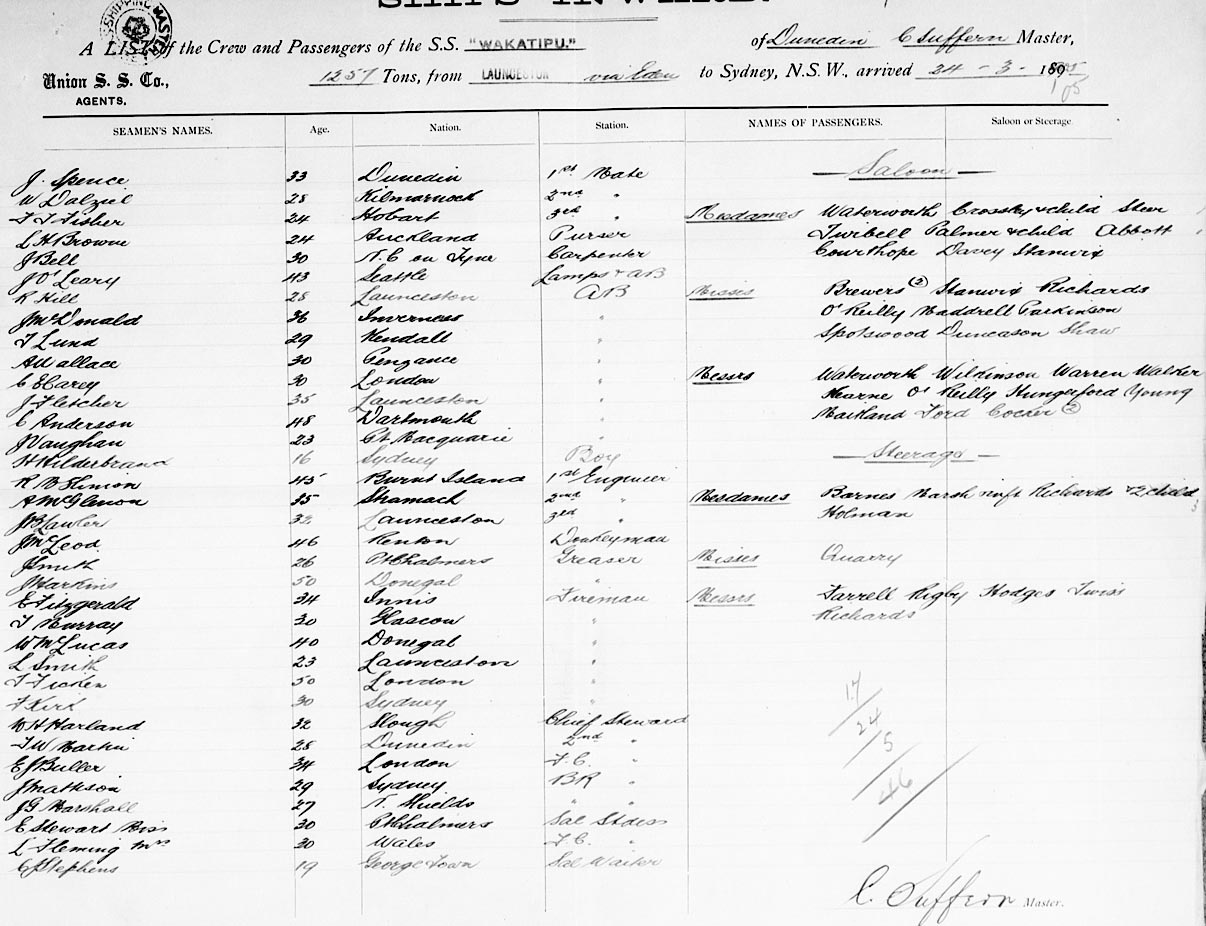 SHIPS INWARD.
SHIPPING MASTER
A LIST of the Crew and Passengers of the S.S. "WAKATIPU." of Dunedin C Suffern Master,
Union S. S. Co., AGENTS. 1257 Tons, from LAUNCESTON via Eden to Sydney, N.S.W., arrived 24 - 3 - 189
1905
SEAMEN'S NAMES. Age. Nation. Station. NAMES OF PASSENGERS. Saloon or Steerage
J. Spence 33 Dunedin 1st Mate — Saloon —
W Dalziel 28 Kilmarnock 2nd "
T T Fisher 24 Hobart 3rd " Mesdames Waterworth Crossley & child Steer
L H Browne 24 Auckland Purser Twibell Palmer & child Abbott
J Bell 30 N. C on Tyne Carpenter Courthope Davey Stanwix
J O'Leary 43 Seattle Lamps & AB
R Hill 28 Launceston AB Misses Brewers (2) Stanwix Richards
J McDonald 36 Inverness " O'Reilly Maddrell Parkinson
T Lund 29 Kendall " Spotswood Duncason Shaw
A Wallace 30 Penzance "
C E Carey 30 London " Messrs Waterworth Wilkinson Warren Walker
J Fletcher 35 Launceston " Hearne O'Reilly Hungerford Young
C Anderson 48 Dartmouth " Maitland Ford Cocker (2)
J Vaughan 23 Pt Macquarie "
H Hilderbrand 16 Sydney Boy — Steerage —
R B Simion 45 Burnt Island 1st Engineer
A McGlinon 35 Shamach 2nd " Mesdames Barnes Marsh inft Richards & 2 child
J B Lawler 32 Launceston 3rd " Holman
J McLeod 46 Renton Donkeyman
J Smith 26 Pt Chalmers Greaser Misses Quarry
J Harkins 50 Donegal "
E Fitzgerald 34 Innis Fireman Messrs Farrell Rigby Hodges Twiss
T Murray 30 Glascow " Richards
W McLucas 40 Donegal "
L Smith 23 Launceston "
T Ficken 50 London "
F Kirk 30 Sydney "
W H Harland 32 Slough Chief Steward
T W Martin 28 Dunedin 2nd "
E J Buller 34 London F. C. "
J Mathson 29 Sydney BR "
J G Marshall 27 N. Shields " "
E Stewart Miss 30 Pt Chalmers Sal Stdess
L Fleming Mrs 30 Wales F. C. "
C Stephens 19 George Town Sal Waiter
17
24
5
46
C. Suffern Master.